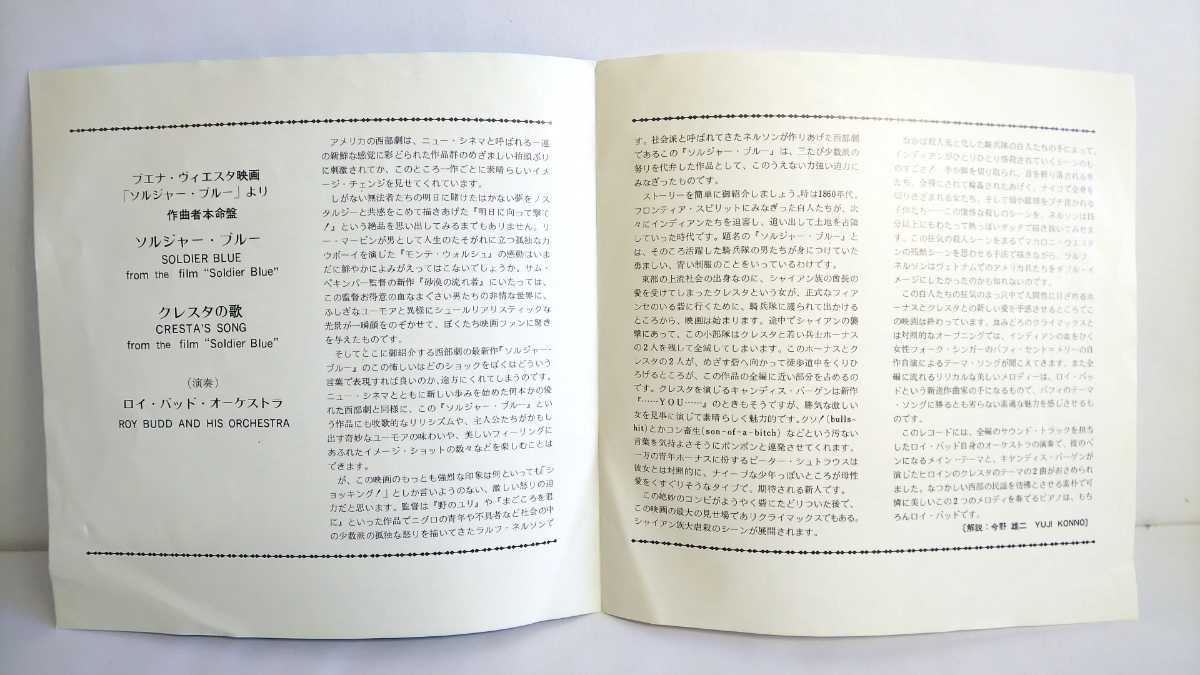 ブエナ・ヴィエスタ映画
「ソルジャー・ブルー」より
作曲者本命盤
ソルジャー・ブルー
SOLDIER BLUE
from the film "Soldier Blue"
クレスタの歌
CRESTA'S SONG
from the film "Soldier Blue"
（演奏）
ロイ・バッド・オーケストラ
ROY BUDD AND HIS ORCHESTRA
アメリカの西部劇は、ニュー・シネマと呼ばれる一連
の新鮮な感覚に彩どられた作品群のめざましい抬頭ぶり
に刺激されてか、このところ一作ごとに素晴らしいイメ
ージ・チェンジを見せてくれています。
しがない無法者たちの明日に賭けたはかない夢をノス
タルジーと共感をこめて描きあげた『明日に向って撃て
！』という絶品を思い出してみるまでもありません。リ
ー・マービンが男として人生のたそがれに立つ孤独なカ
ウボーイを演じた『モンテ・ウォルシュ』の感動はいま
だに鮮やかによみがえってはこないでしょうか。サム・
ペキンパー監督の新作『砂漠の流れ者』にいたっては、
この監督お得意の血なまぐさい男たちの非情な世界に、
ふしぎなユーモアと異様にシュールリアリスティックな
光景が一瞬顔をのぞかせて、ぼくたち映画ファンに驚き
を与えたものです。
そしてここに御紹介する西部劇の最新作『ソルジャー・
ブルー』のこの怖しいほどのショックをぼくはどういう
言葉で表現すれば良いのか、途方にくれてしまうのです。
ニュー・シネマとともに新しい歩みを始めた何本かの優
れた西部劇と同様に、この『ソルジャー・ブルー』とい
う作品にも牧歌的なリリシズムや、主人公たちがかもし
出す奇妙なユーモアの味わいや、美しいフィーリングに
あふれたイメージ・ショットの数々などを楽しむことは
できます。
が、この映画のもっとも強烈な印象は何といっても「シ
ョッキング！」としか言いようのない、激しい怒りの迫
力だと思います。監督は『野のユリ』や『まごころを君
に』といった作品でニグロの青年や不具者など社会の中
の少数派の孤独な怒りを描いてきたラルフ・ネルソンで
す。社会派と呼ばれてきたネルソンが作りあげた西部劇
であるこの『ソルジャー・ブルー』は、三たび少数派の
怒りを代弁した作品として、このうえない力強い迫力に
みなぎったものです。
ストーリーを簡単に御紹介しましょう。時は1860年代。
フロンティア・スピリットにみなぎった白人たちが、次
々にインディアンたちを迫害し、追い出して土地を占領
していった時代です。題名の『ソルジャー・ブルー』と
は、そのころ活躍した騎兵隊の男たちが身につけていた
勇ましい、青い制服のことをいっているわけです。
東部の上流社会の出身なのに、シャイアン族の酋長の
愛を受けてしまったクレスタという女が、正式なフィア
ンセのいる砦に行くために、騎兵隊に護られて出かける
ところから、映画は始まります。途中でシャイアンの襲
撃にあって、この小部隊はクレスタと若い兵士ホーナス
の２人を残して全滅してしまいます。このホーナスとク
レスタの２人が、めざす砦へ向かって徒歩道中をくりひ
ろげるところが、この作品の全編に近い部分を占めるの
です。クレスタを演じるキャンディス・バーゲンは新作
『……ＹＯＵ……』のときもそうですが、勝気な激しい
女を見事に演じて素晴らしく魅力的です。クソ！(bulls-
hit)とかコン畜生(son-of-a-bitch) などという汚ない
言葉を気持よさそうにポンポンと連発させてくれます。
一方の青年ホーナスに扮するピーター・シュトラウスは
彼女とは対照的に、ナイーブな少年っぽいところが母性
愛をくすぐりそうなタイプで、期待される新人です。
この絶妙のコンビがようやく砦にたどりついた後で、
この映画の最大の見せ場でありクライマックスでもある。
シャイアン族大虐殺のシーンが展開されます。
なかば殺人鬼と化した騎兵隊の白人たちの手によって、
インディアンがひとりひとり惨殺されていくシーンのも
のすごさ！ 手や脚を切り取られ、首を斬り落される男
たち、全裸にされて輪姦されたあげく、ナイフで全身を
切りきざまれる女たち、そして頭や眼球をブチ抜かれる
子供たち……この凄惨な殺しのシーンを、ネルソンは15
分以上にもわたって熱っぽいタッチで描き抜いてみせま
す。この狂気の殺人シーンをまるでマカロニ・ウエスタ
ンの残酷シーンを思わせる手法で描きながら、ラルフ・
ネルソンはヴェトナムでのアメリカ兵たちをダブル・イ
メージにしたかったのかも知れないのです。
この白人たちの狂気のまっ只中で人間性に目ざめるホ
ーナスとクレスタとの新しい愛を予感させるところでこ
の映画は終わっています。血みどろのクライマックスと
は対照的なオープニングでは、インディアンの血をひく
女性フォーク・シンガーのバフィ・セント＝メリーの自
作自演によるテーマ・ソングが聞こえてきます。また全
編に流れるリリカルな美しいメロディーは、ロイ・バッ
ドという新進作曲家の手になるもので、バフィのテーマ
・ソングに勝るとも劣らない素適な魅力を感じさせるも
のです。
このレコードには、全編のサウンド・トラックを担当
したロイ・バッド自身のオーケストラの演奏で、彼のペ
ンになるメイン・テーマと、キャンディス・バーゲンが
演じたヒロインのクレスタのテーマの２曲がおさめられ
ました。なつかしい西部の民謡を彷彿とさせる素朴で可
憐に美しいこの２つのメロディを奏でるピアノは、もち
ろんロイ・バッドです。
〔解説：今野 雄二 YUJI KONNO〕